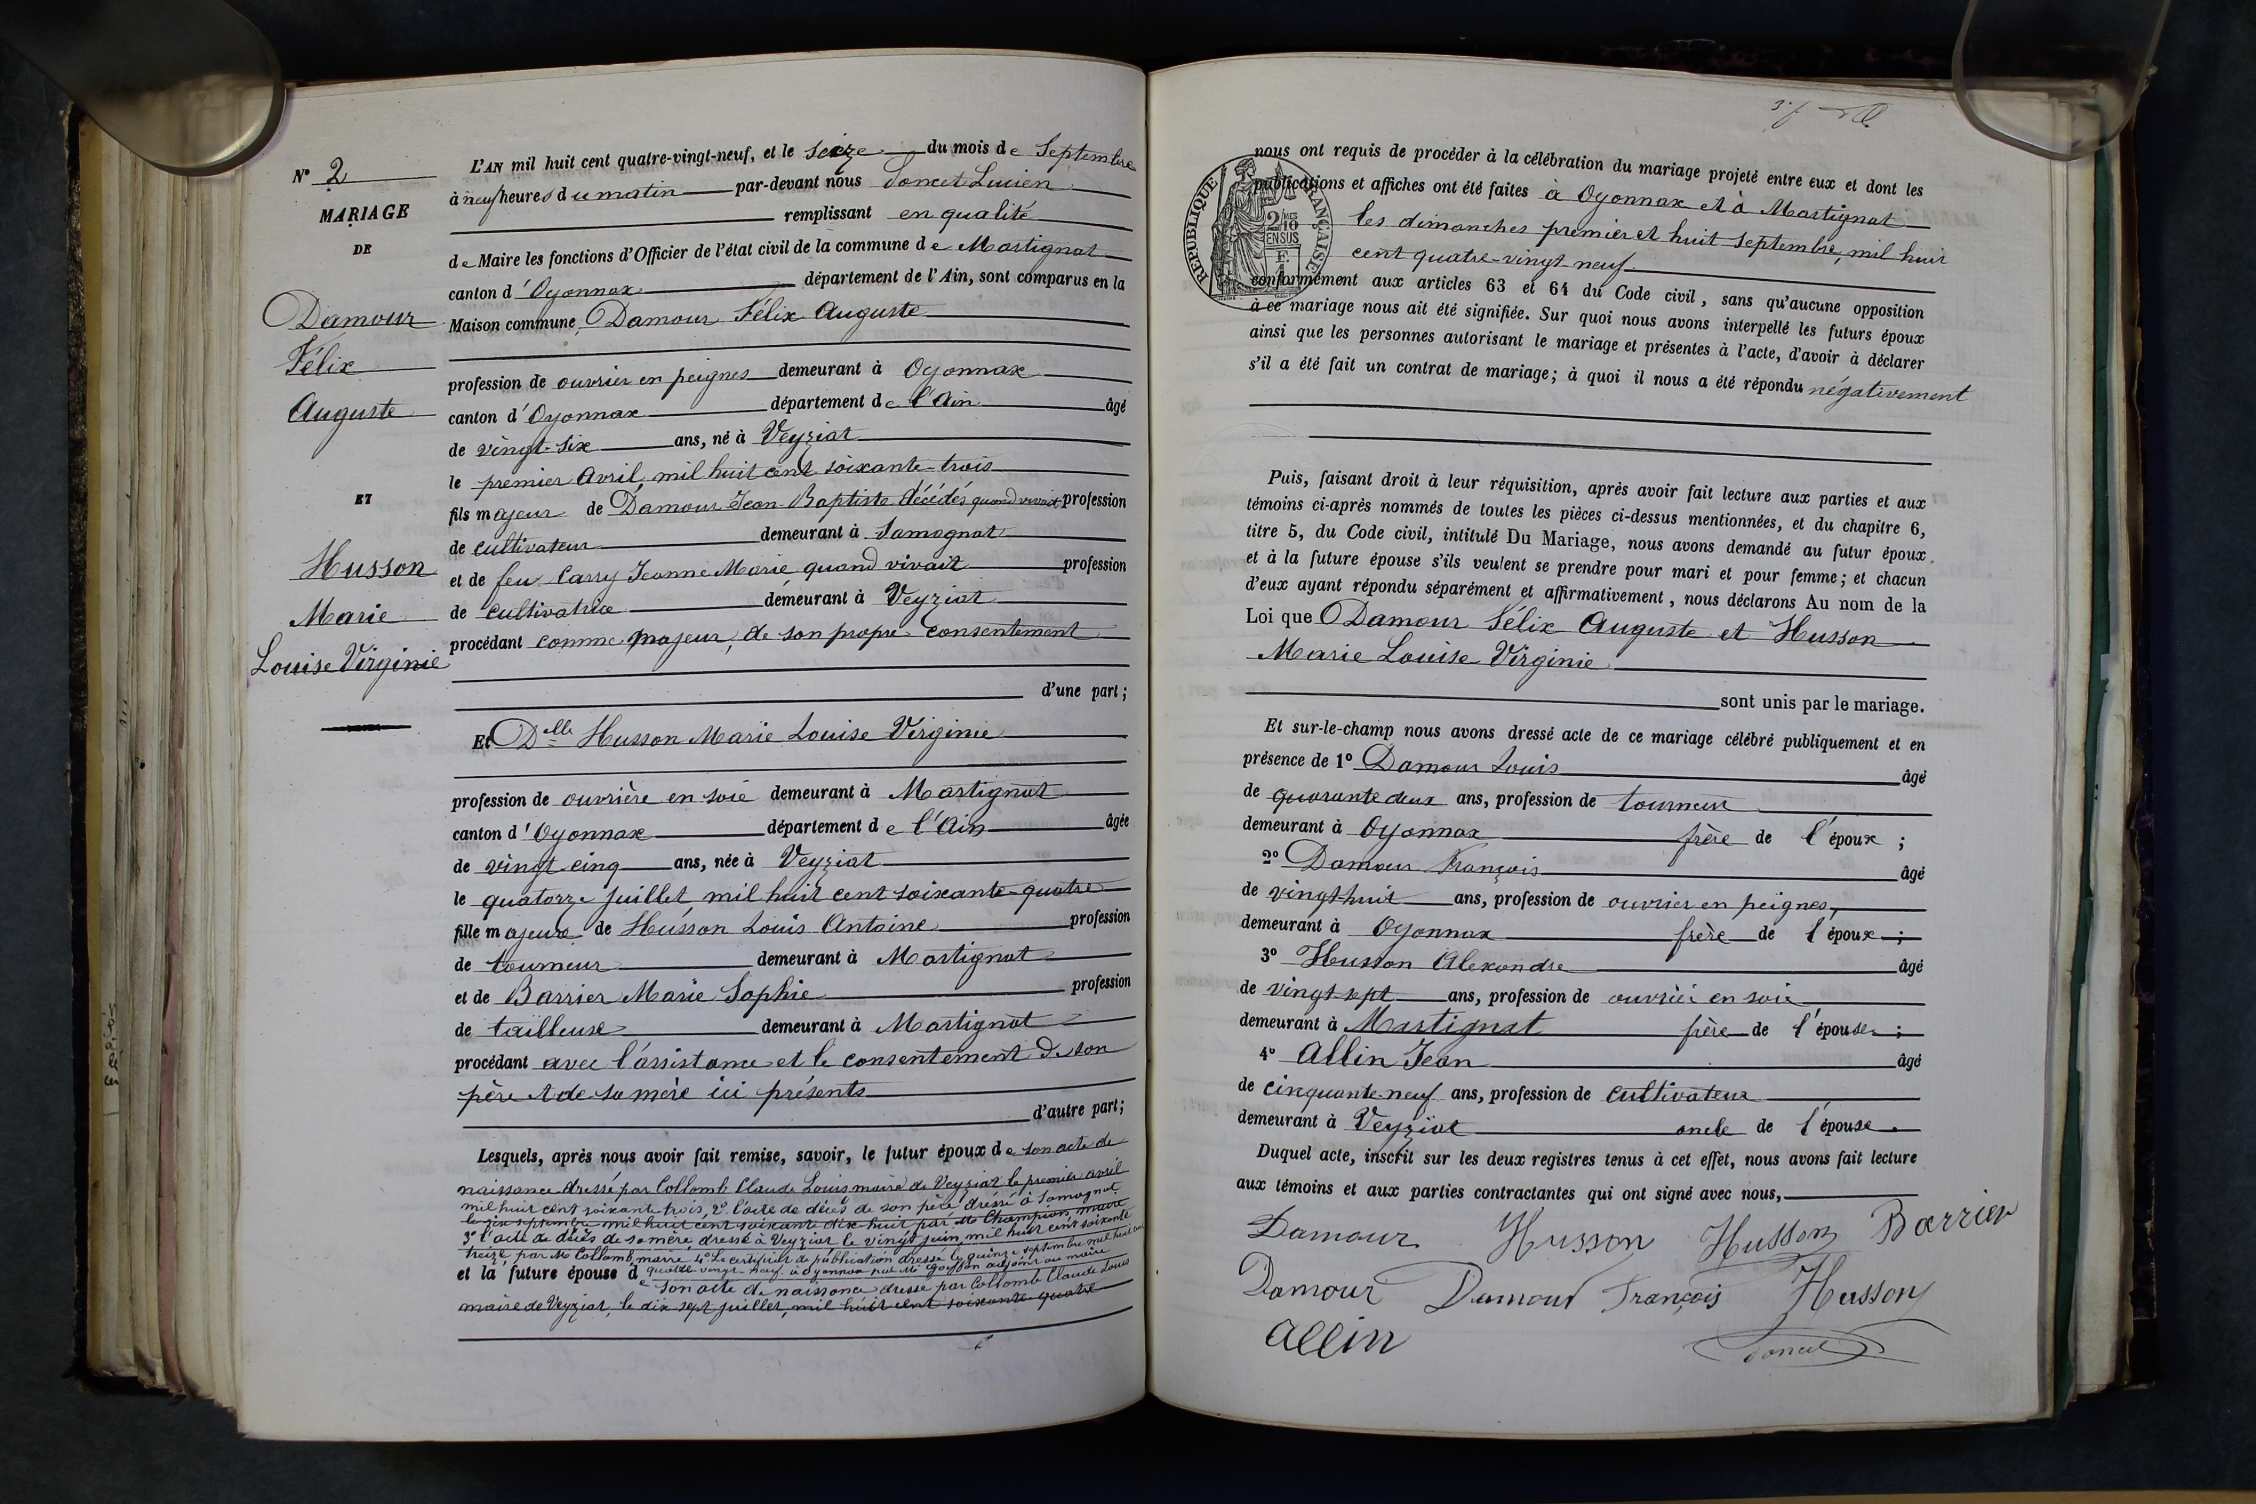 N° 2
MARIAGE
DE
Damour
Félix
Auguste
ET
Husson
Marie
Louise Virginie
L'AN mil huit cent quatre-vingt-neuf, et le seize du mois de Septembre
à neuf heures du matin par-devant nous Poncet Lucien
remplissant en qualité
de Maire les fonctions d'Officier de l'état civil de la commune de Martignat
canton d'Oyonnax département de l'Ain, sont comparus en la
Maison commune, Damour Félix Auguste
profession de ouvrier en peignes demeurant à Oyonnax
canton d'Oyonnax département de l'Ain âgé
de vingt-six ans, né à Veyziat
le premier Avril, mil huit cent soixante-trois
fils majeur de Damour Jean Baptiste décédés quand vivait profession
de cultivateur demeurant à Samognat
et de feu Carry Jeanne Marie quand vivait profession
de cultivatrice demeurant à Veyziat
procédant comme majeur, de son propre consentement
d'une part;
Et Delle Husson Marie Louise Virginie
profession de ouvrière en soie demeurant à Martignat
canton d'Oyonnax département de l'Ain âgée
de vingt-cinq ans, née à Veyziat
le quatorze juillet, mil huit cent soixante-quatre
fille majeure de Husson Louis Antoine profession
de tourneur demeurant à Martignat
et de Barrier Marie Sophie profession
de tailleuse demeurant à Martignat
procédant avec l'assistance et le consentement de son
père et de sa mère ici présents
d'autre part;
Lesquels, après nous avoir fait remise, savoir, le futur époux de son acte de
naissance dressé par Collomb Claude Louis maire de Veyziat le premier avril
mil huit cent soixante trois, 2° l'acte de décès de son père dressé à Samognat
le six septembre mil huit cent soixante dix-huit par Mr Champion, maire
3° l'acte de décès de sa mère, dressé à Veyziat le vingt juin, mil huit cent soixante
treize, par Mr Collomb, maire 4° Le certificat de publication dressé le quinze septembre mil huit cent
quatre vingt neuf à Oyonnax par Mr adjoint au maire
et la future épouse de son acte de naissance dressé par Collomb Claude Louis
maire de Veyziat, le dix sept juillet, mil huit cent soixante quatre
3e f
RÉPUBLIQUE FRANÇAISE
2/10 EN SUS
nous ont requis de procéder à la célébration du mariage projeté entre eux et dont les
publications et affiches ont été faites à Oyonnax et à Martignat
les dimanches premier et huit septembre, mil huit
cent quatre-vingt-neuf
conformément aux articles 63 et 64 du Code civil, sans qu'aucune opposition
à ce mariage nous ait été signifiée. Sur quoi nous avons interpellé les futurs époux
ainsi que les personnes autorisant le mariage et présentes à l'acte, d'avoir à déclarer
s'il a été fait un contrat de mariage; à quoi il nous a été répondu négativement
Puis, faisant droit à leur réquisition, après avoir fait lecture aux parties et aux
témoins ci-après nommés de toutes les pièces ci-dessus mentionnées, et du chapitre 6,
titre 5, du Code civil, intitulé Du Mariage, nous avons demandé au futur époux
et à la future épouse s'ils veulent se prendre pour mari et pour femme; et chacun
d'eux ayant répondu séparément et affirmativement, nous déclarons Au nom de la
Loi que Damour Félix Auguste et Husson
Marie Louise Virginie
sont unis par le mariage.
Et sur-le-champ nous avons dressé acte de ce mariage célébré publiquement et en
présence de 1° Damour Louis âgé
de quarante deux ans, profession de tourneur
demeurant à Oyonnax frère de l'époux ;
2° Damour François âgé
de vingt-huit ans, profession de ouvrier en peignes,
demeurant à Oyonnax frère de l'époux ;
3° Husson Alexandre âgé
de vingt-sept ans, profession de ouvrier en soie
demeurant à Martignat frère de l'épouse ;
4° Allin Jean âgé
de cinquante-neuf ans, profession de cultivateur
demeurant à Veyziat oncle de l'épouse.
Duquel acte, inscrit sur les deux registres tenus à cet effet, nous avons fait lecture
aux témoins et aux parties contractantes qui ont signé avec nous,
Damour Husson Husson Barrier
Damour Damour François Husson
Allin Poncet